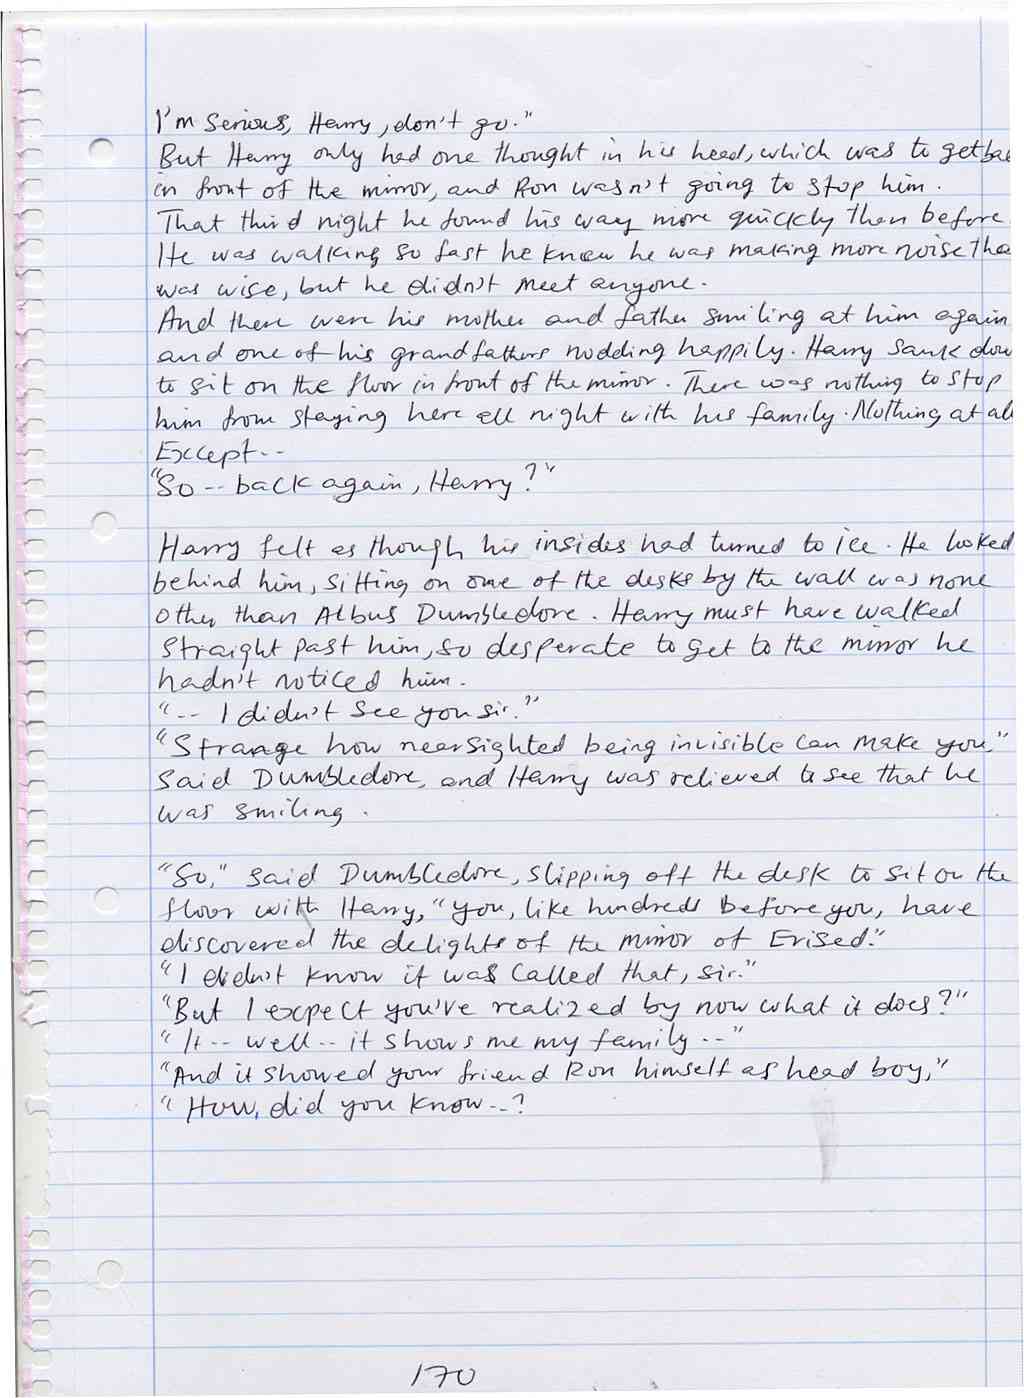 I'm serious, Harry, don't go."
But Harry only had one thought in his head, which was to get bac
in front of the mirror, and Ron wasn't going to stop him.
That third night he found his way more quickly than before
He was walking so fast he knew he was making more noise tha
was wise, but he didn't meet anyone.
And there were his mother and father smiling at him again
and one of his grandfathers nodding happily. Harry sank dow
to sit on the floor in front of the mirror. There was nothing to stop
him from staying here all night with his family. Nothing at all
Except--
"So -- back again, Harry?"
Harry felt as though his insides had turned to ice. He looked
behind him, sitting on one of the desks by the wall was none
other than Albus Dumbledore. Harry must have walked
straight past him, so desperate to get to the mirror he
hadn't noticed him.
"-- I didn't see you sir."
"Strange how nearsighted being invisible can make you,"
said Dumbledore, and Harry was relieved to see that he
was smiling.
"So," said Dumbledore, slipping off the desk to sit on the
floor with Harry, "you, like hundreds before you, have
discovered the delights of the mirror of Erised."
"I didn't know it was called that, sir."
"But I expect you've realized by now what it does?"
"It -- well -- it shows me my family --"
"And it showed your friend Ron himself as head boy,"
"How, did you know--?
170